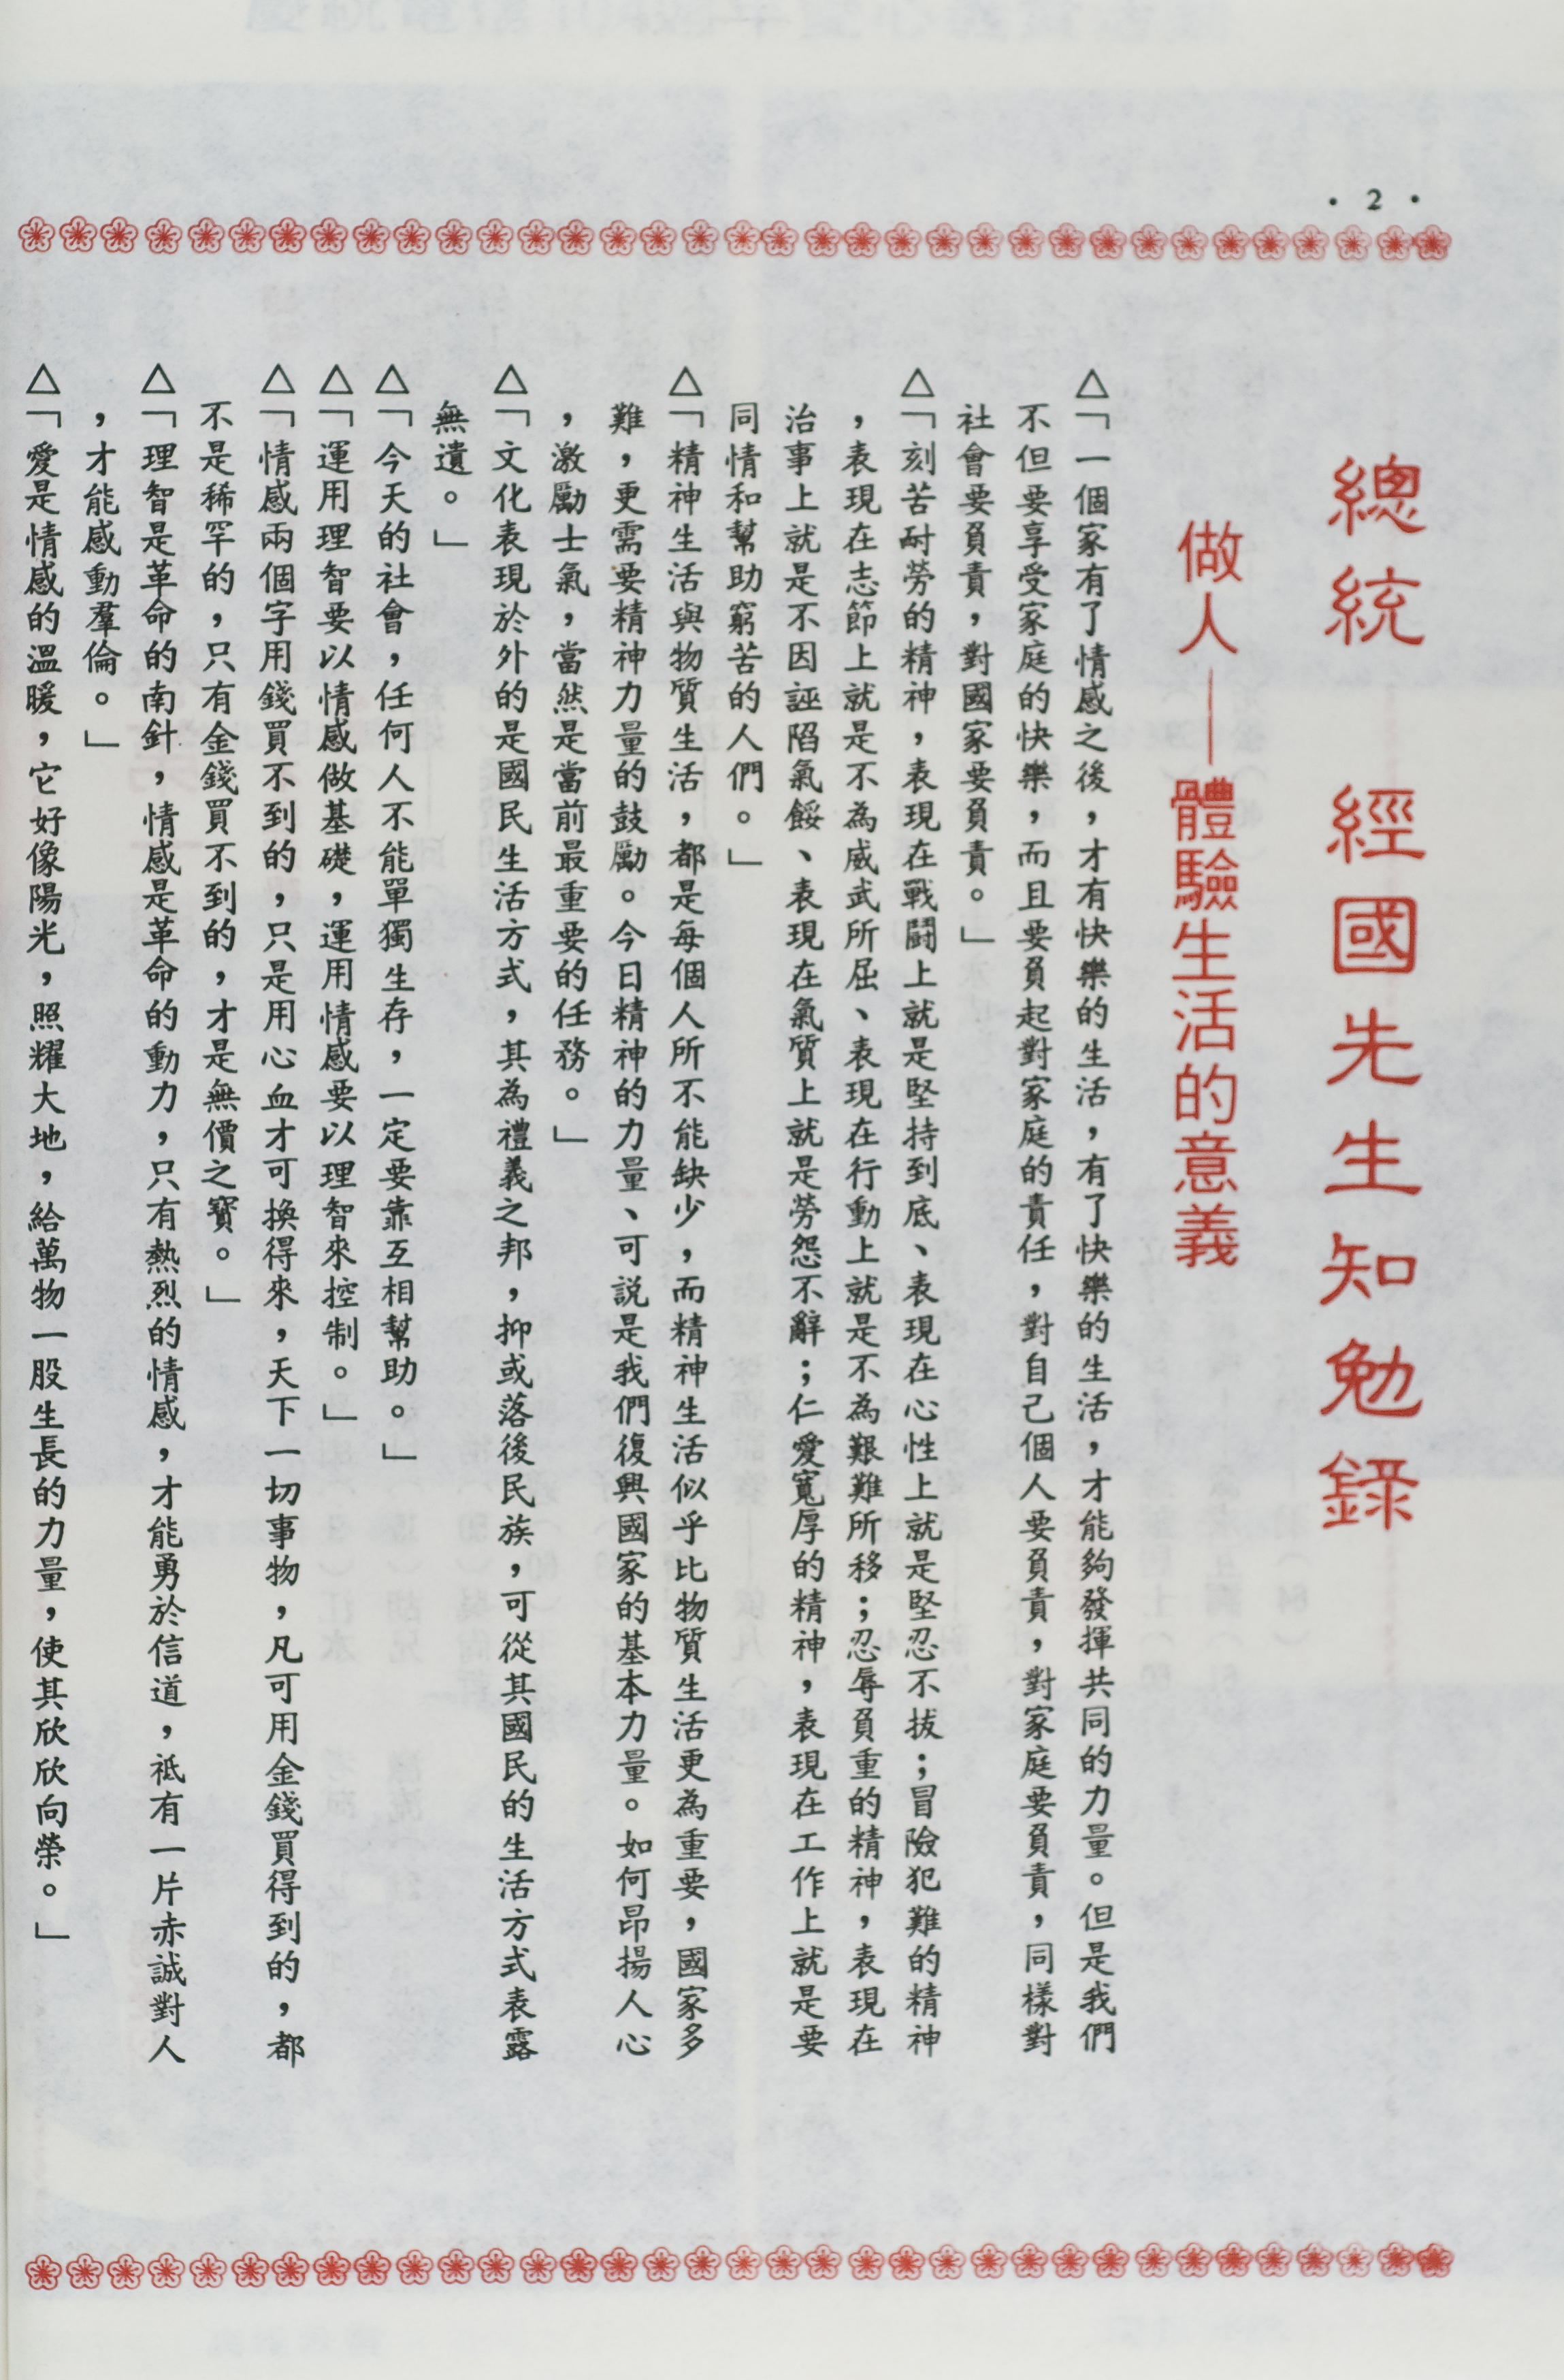 • 2 •
總統 經國先生知勉錄
做人——體驗生活的意義
△「一個家有了情感之後，才有快樂的生活，有了快樂的生活，才能夠發揮共同的力量。但是我們
不但要享受家庭的快樂，而且要負起對家庭的責任，對自己個人要負責，對家庭要負責，同樣對
社會要負責，對國家要負責。」
△「刻苦耐勞的精神，表現在戰鬪上就是堅持到底、表現在心性上就是堅忍不拔；冒險犯難的精神
，表現在志節上就是不為威武所屈、表現在行動上就是不為艱難所移；忍辱負重的精神，表現在
治事上就是不因誣陷氣餒、表現在氣質上就是勞怨不辭；仁愛寬厚的精神，表現在工作上就是要
同情和幫助窮苦的人們。」
△「精神生活與物質生活，都是每個人所不能缺少，而精神生活似乎比物質生活更為重要，國家多
難，更需要精神力量的鼓勵。今日精神的力量、可説是我們復興國家的基本力量。如何昂揚人心
，激勵士氣，當然是當前最重要的任務。」
△「文化表現於外的是國民生活方式，其為禮義之邦，抑或落後民族，可從其國民的生活方式表露
無遺。」
△「今天的社會，任何人不能單獨生存，一定要靠互相幫助。」
△「運用理智要以情感做基礎，運用情感要以理智來控制。」
△「情感兩個字用錢買不到的，只是用心血才可換得來，天下一切事物，凡可用金錢買得到的，都
不是稀罕的，只有金錢買不到的，才是無價之寶。」
△「理智是革命的南針，情感是革命的動力，只有熱烈的情感，才能勇於信道，祗有一片赤誠對人
，才能感動羣倫。」
△「愛是情感的溫暖，它好像陽光，照耀大地，給萬物一股生長的力量，使其欣欣向榮。」